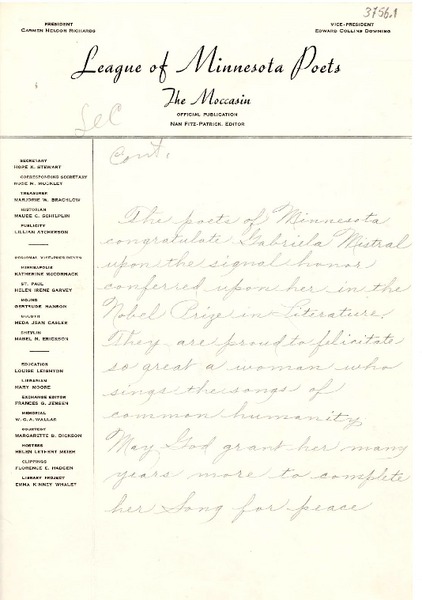 3756.1
PRESIDENT
CARMEN NELSON RICHARDS
VICE-PRESIDENT
EDWARD COLLINS DOWNING
League of Minnesota Poets
The Moccasin
OFFICIAL PUBLICATION
NAN FITZ-PATRICK, EDITOR
Sec
Cont.
SECRETARY
HOPE R. STEWART
CORRESPONDING SECRETARY
TREASURER
MARJORIE W. BRACHLOW
HISTORIAN
MAUDE C. SCHILPLIN
PUBLICITY
LILLIAN
REGIONAL VICE-PRESIDENTS
MINNEAPOLIS
KATHERINE MCCORMACK
ST. PAUL
HELEN IRENE GARVEY
GERTRUDE HANSON
DULUTH
HEDA JEAN CASLER
SHEVLIN
MABEL N. ERICKSON
EDUCATION
LOUISE LEIGHTON
LIBRARIAN
MARY MOORE
EXCHANGE EDITOR
FRANCES G. JENSEN
MEMORIAL
COURTESY
MARGARETTE B. DICKSON
HOSTESS
HELEN MEIER
CLIPPINGS
FLORENCE E. HADEEN
LIBRARY PROJECT
EMMA KINNEY WHALEY
The poets of Minnesota
congratulate Gabriela Mistral
upon the signal honor
conferred upon her in the
Nobel Prize in Literature.
They are proud to felicitate
so great a woman who
sings the songs of
common humanity
May God grant her many
years more to complete
her song for peace